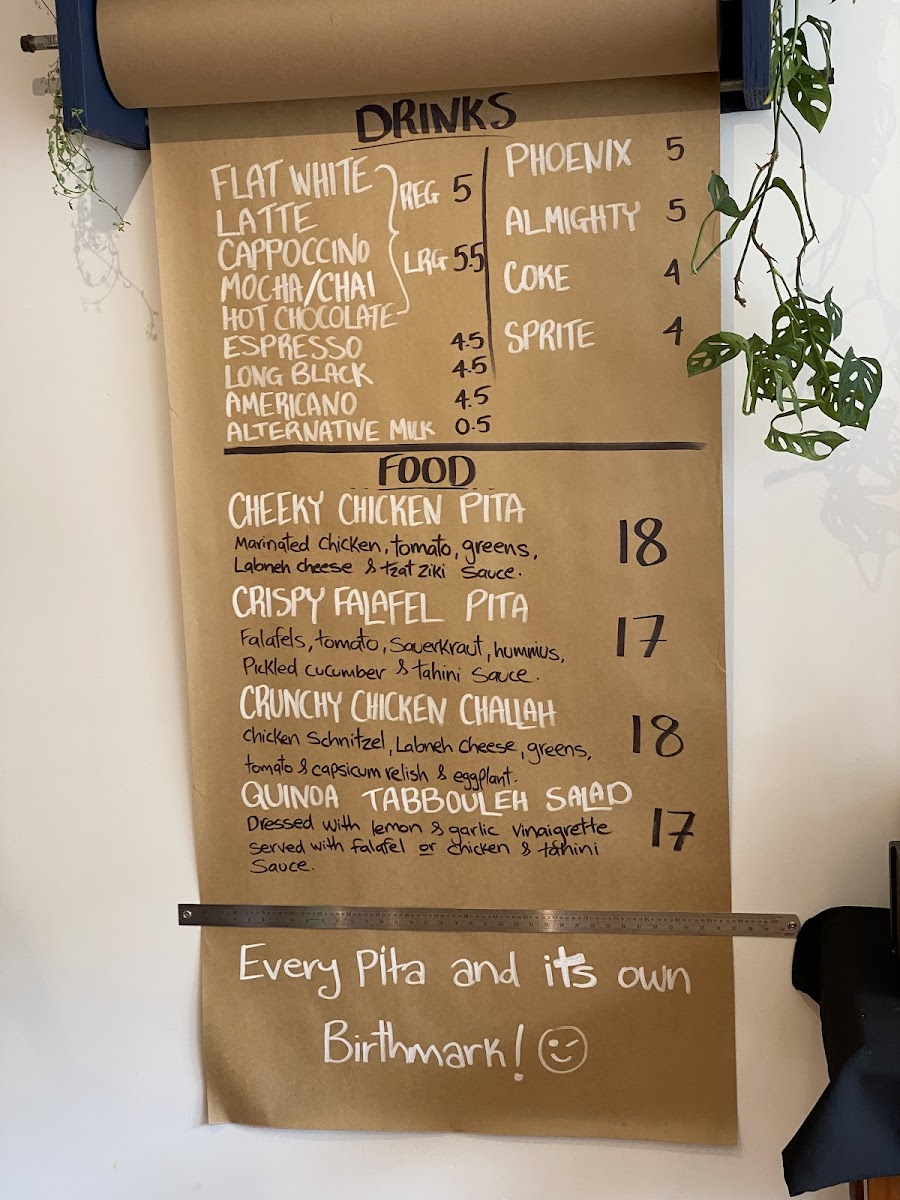 DRINKS
FLAT WHITE
LATTE
CAPPOCCINO
MOCHA/CHAI
HOT CHOCOLATE
REG 5
LRG 5.5
ESPRESSO 4.5
LONG BLACK 4.5
AMERICANO 4.5
ALTERNATIVE MILK 0.5
PHOENIX 5
ALMIGHTY 5
COKE 4
SPRITE 4
FOOD
CHEEKY CHICKEN PITA 18
Marinated Chicken, tomato, greens,
Labneh cheese & tzatziki sauce.
CRISPY FALAFEL PITA 17
Falafels, tomato, Sauerkraut, hummus,
Pickled cucumber & tahini sauce.
CRUNCHY CHICKEN CHALLAH 18
Chicken Schnitzel, Labneh cheese, greens,
tomato & capsicum relish & eggplant.
QUINOA TABBOULEH SALAD 17
Dressed with lemon & garlic vinaigrette
served with falafel or chicken & tahini
Sauce.
Every Pita and its own
Birthmark!